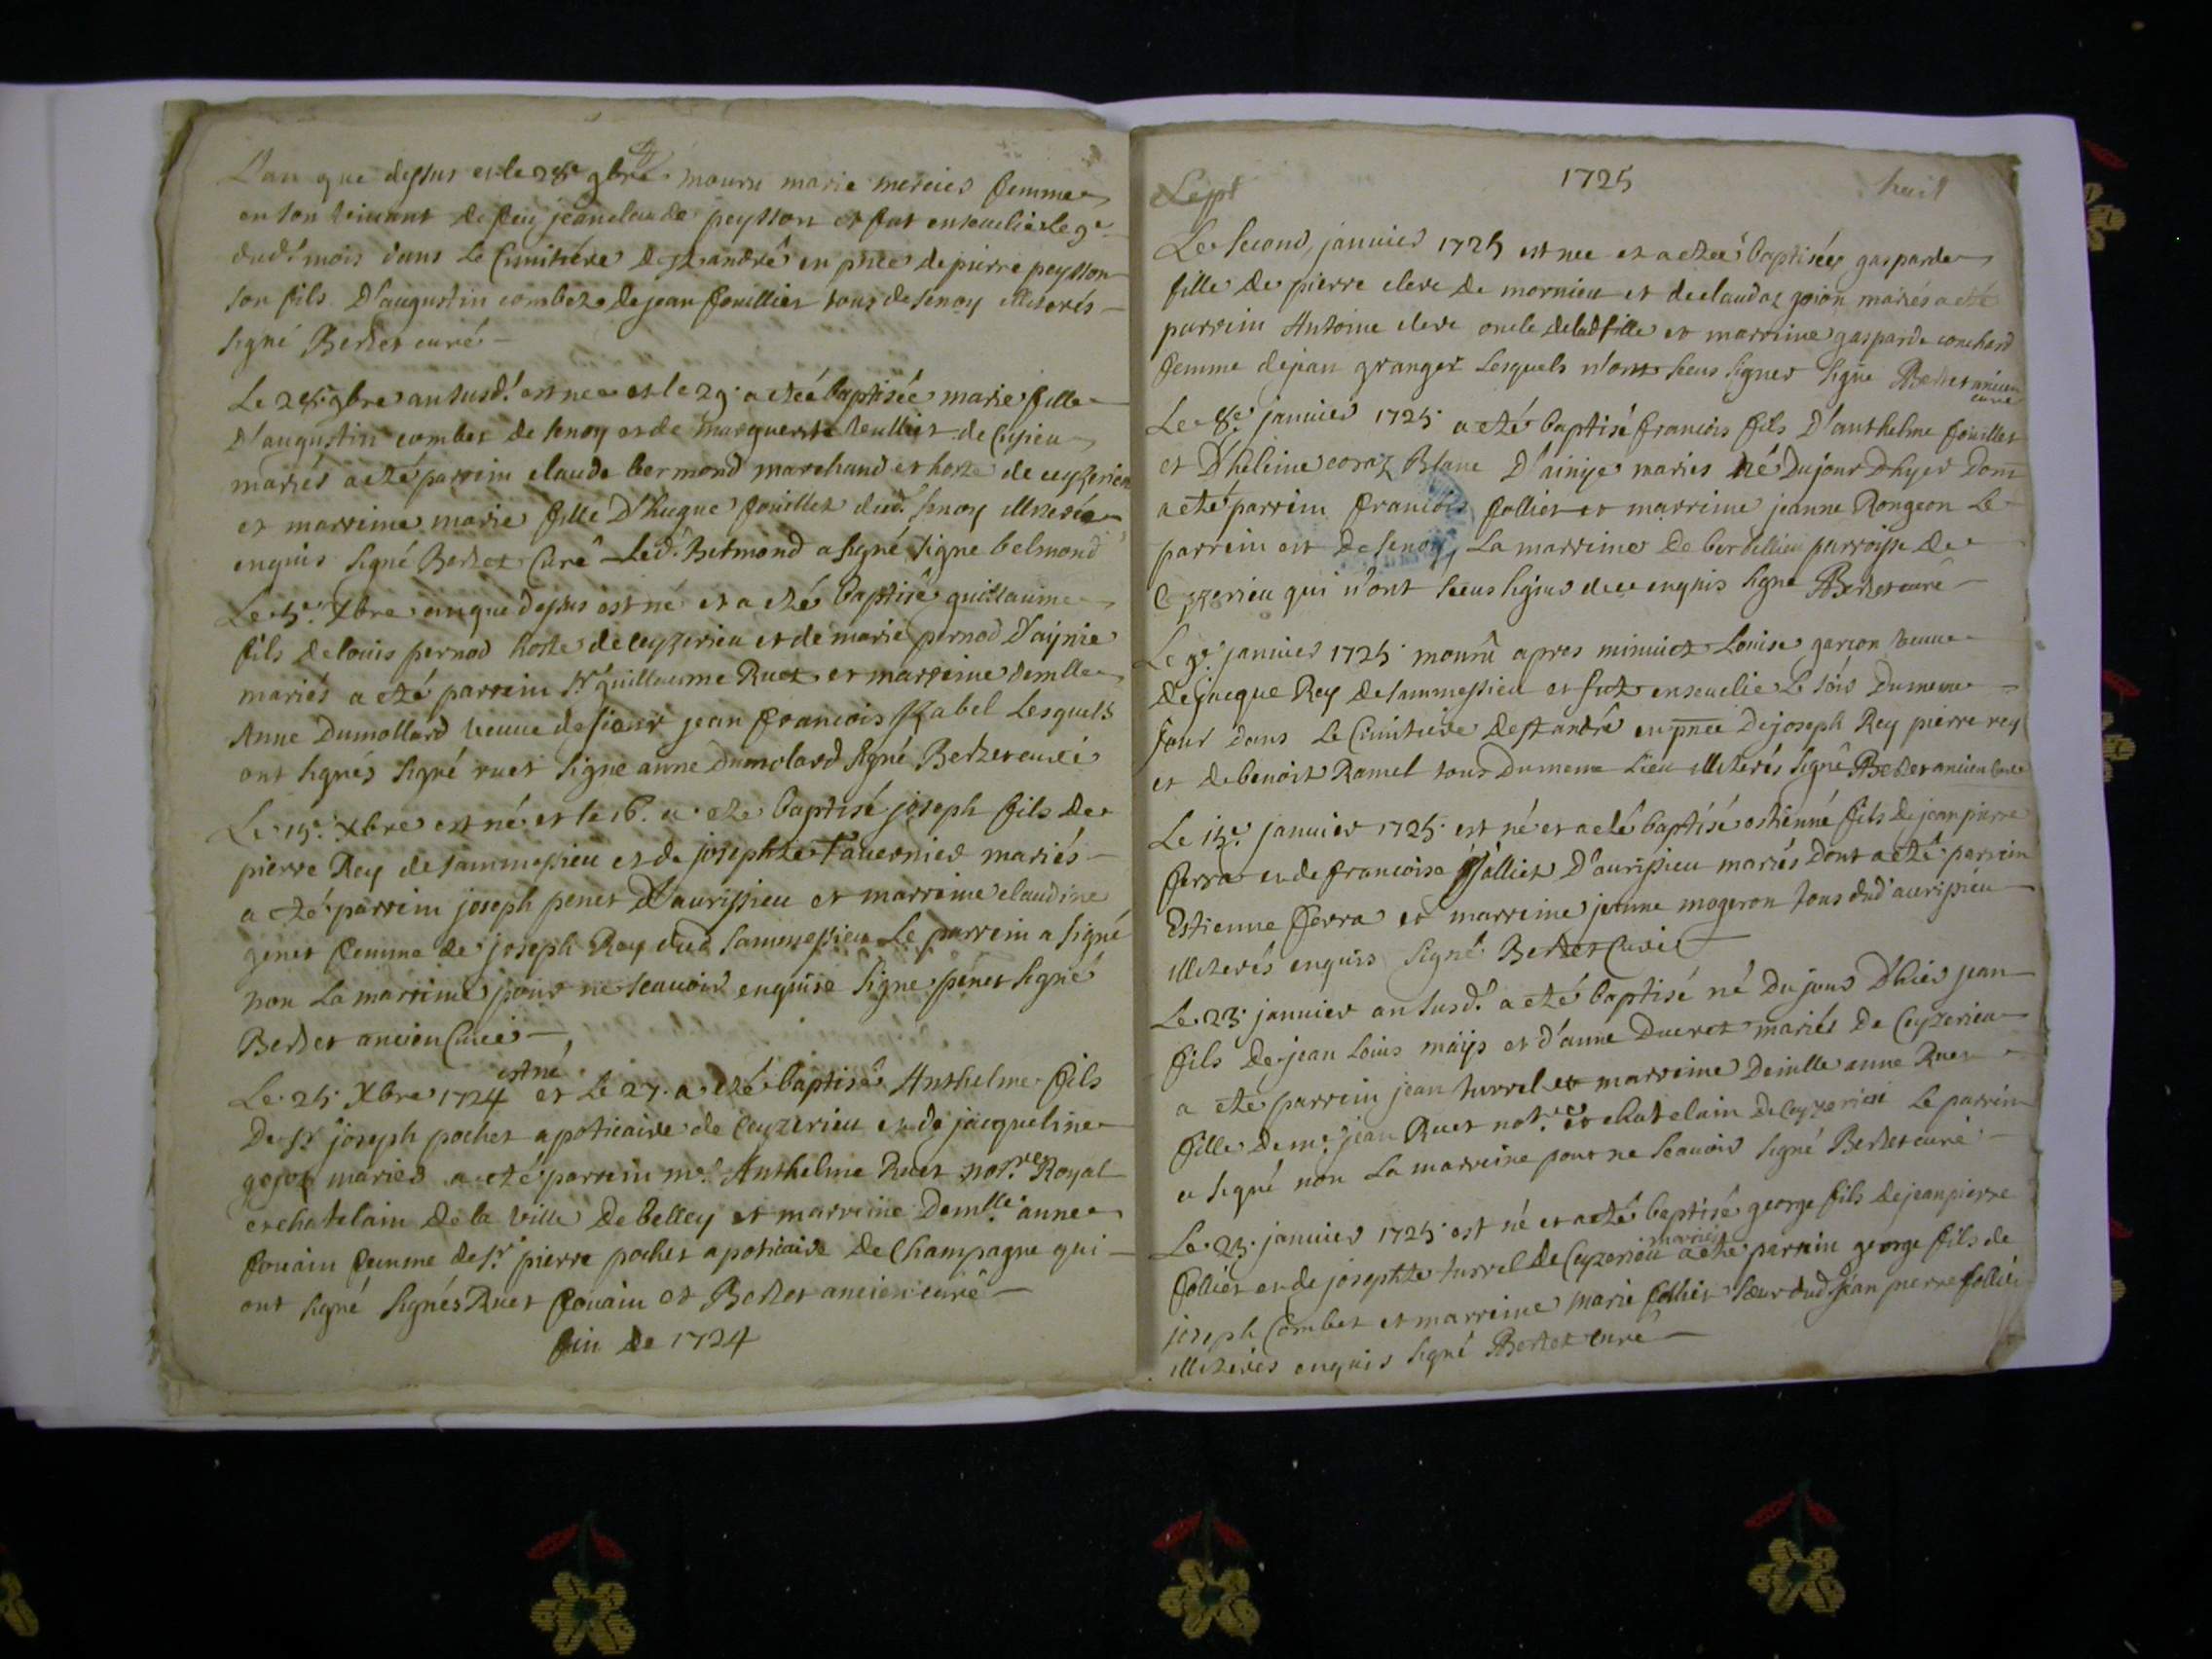 L'an que dessus et le 28e 9bre mouru marie mercies femme
en son vivant de feu jean claude peysson et fut ensevelie le 9e
dud. mois dans le Cimitiere de St andré en pnce de pierre peysson
son fils D'augustin combet de jean fouilliet tous de Senoy illiterés
signé Berdet curé
Le 28. 9bre an susd. est nee et le 29. a etée baptisée marie fille
D'augustin combet de senoy et de marguerite veulliet de Cusieu
mariés a eté parrein claude bermond marchand et hoste de ceyzerieu
et marrine marie fille D'hugue fouillet dud. senoy illiterée
enquis signé Berdet Curé Led. Bermond a signé signe belmond
Le 5e Xbre an que dessus est né et a eté baptisé guillaume
fils de louis pernod hoste de ceyzerieu et de marie pernod D'aynie
mariés a eté parrein Sr guillaume Ruet et marreine demlle
Anne Dumollard veuve de sieur jean francois Lesquels
ont signés signé ruet signe anne Dumolard signé Berdet curé
Le 15e Xbre est né et le 16. a eté baptisé joseph fils de
pierre Rey de sammessieu et de josephte Tavernier mariés
a eté parrein joseph penet D'aurissieu et marreine claudine
genet femme de joseph Rey dud Sammessieu Le parrein a signé
non la marreine pour ne scauoir enquise signe penet signé
Berdet ancien Curé
Le 25. Xbre 1724 est né et le 27. a eté baptisé Anthelme fils
De Sr joseph pochet apoticaire de Ceyzerieu et de jacqueline
gojoz mariés a eté parrein me. Anthelme Ruet notre Royal
et chatelain de la ville de belley et marreine Demlle anne
fouain femme de Sr. pierre pochet apoticaire De Champagne qui
ont signé signés Ruet fouain et Berdet ancien curé
fin de 1724
Sept 1725 huit
Le second janvier 1725 est nee et a etée baptisée gasparde
fille de pierre clere de mornieu et de claudaz goion mariés a eté
parrein Antoine clere oncle de lad fille et marreine gasparde couchard
femme de jean granger Lesquels n'ont sceus signer signe Berdet ancien
curé
Le 8e. janvier 1725 a eté baptisé francois fils D'anthelme fouillet
et D'heleine coraz Blanc D'ainije mariés né du jour Dhyer Dont
a eté parrein francois folliet et marreine jeanne Rongeon Le
parrein est de senoy, La marreine De berthillieu parroisse de
Ceyzerieu qui n'ont sceus signer de ce enquis signe Berdet curé
Le 9e. janvier 1725 mourû apres minuict Louise garcon veuve
de jacque Rey de sammessieu et fut ensevelie Le soir du meme
jour dans Le Cimitiere de St andré en pnce De joseph Rey pierre rey
et de benoist Ramel tous Du meme Lieu illiterés signé Berdet ancien Curé
Le 15e. janvier 1725 est né et a eté baptisé estienne fils de jean pierre
ferra et de francoise jolliet D'aurissieu mariés Dont a eté parrein
Estienne ferra et marreine jeanne mogeron tous dud aurissieu
illiterés enquis signé Berdet Curé
Le 23. janvier an susd. a eté baptisé né du jour D'hier jean
fils de jean Louis mays et d'anne Ducret mariés De Ceyzerieu
a eté parrein jean turrel et marreine Demlle anne Ruet
fille de me. jean Ruet notre. et chatelain de Ceyzerieu Le parrein
a signé non La marreine pour ne scauoir signé Berdet curé
Le 25. janvier 1725 est né et a eté baptisé george fils de jean pierre
folliet et de josephte turrel de Ceyzerieu mariés a eté parrein george fils de
joseph Combet et marreine marie folliet sœur dud. jean pierre folliet
illiterés enquis signé Berdet curé